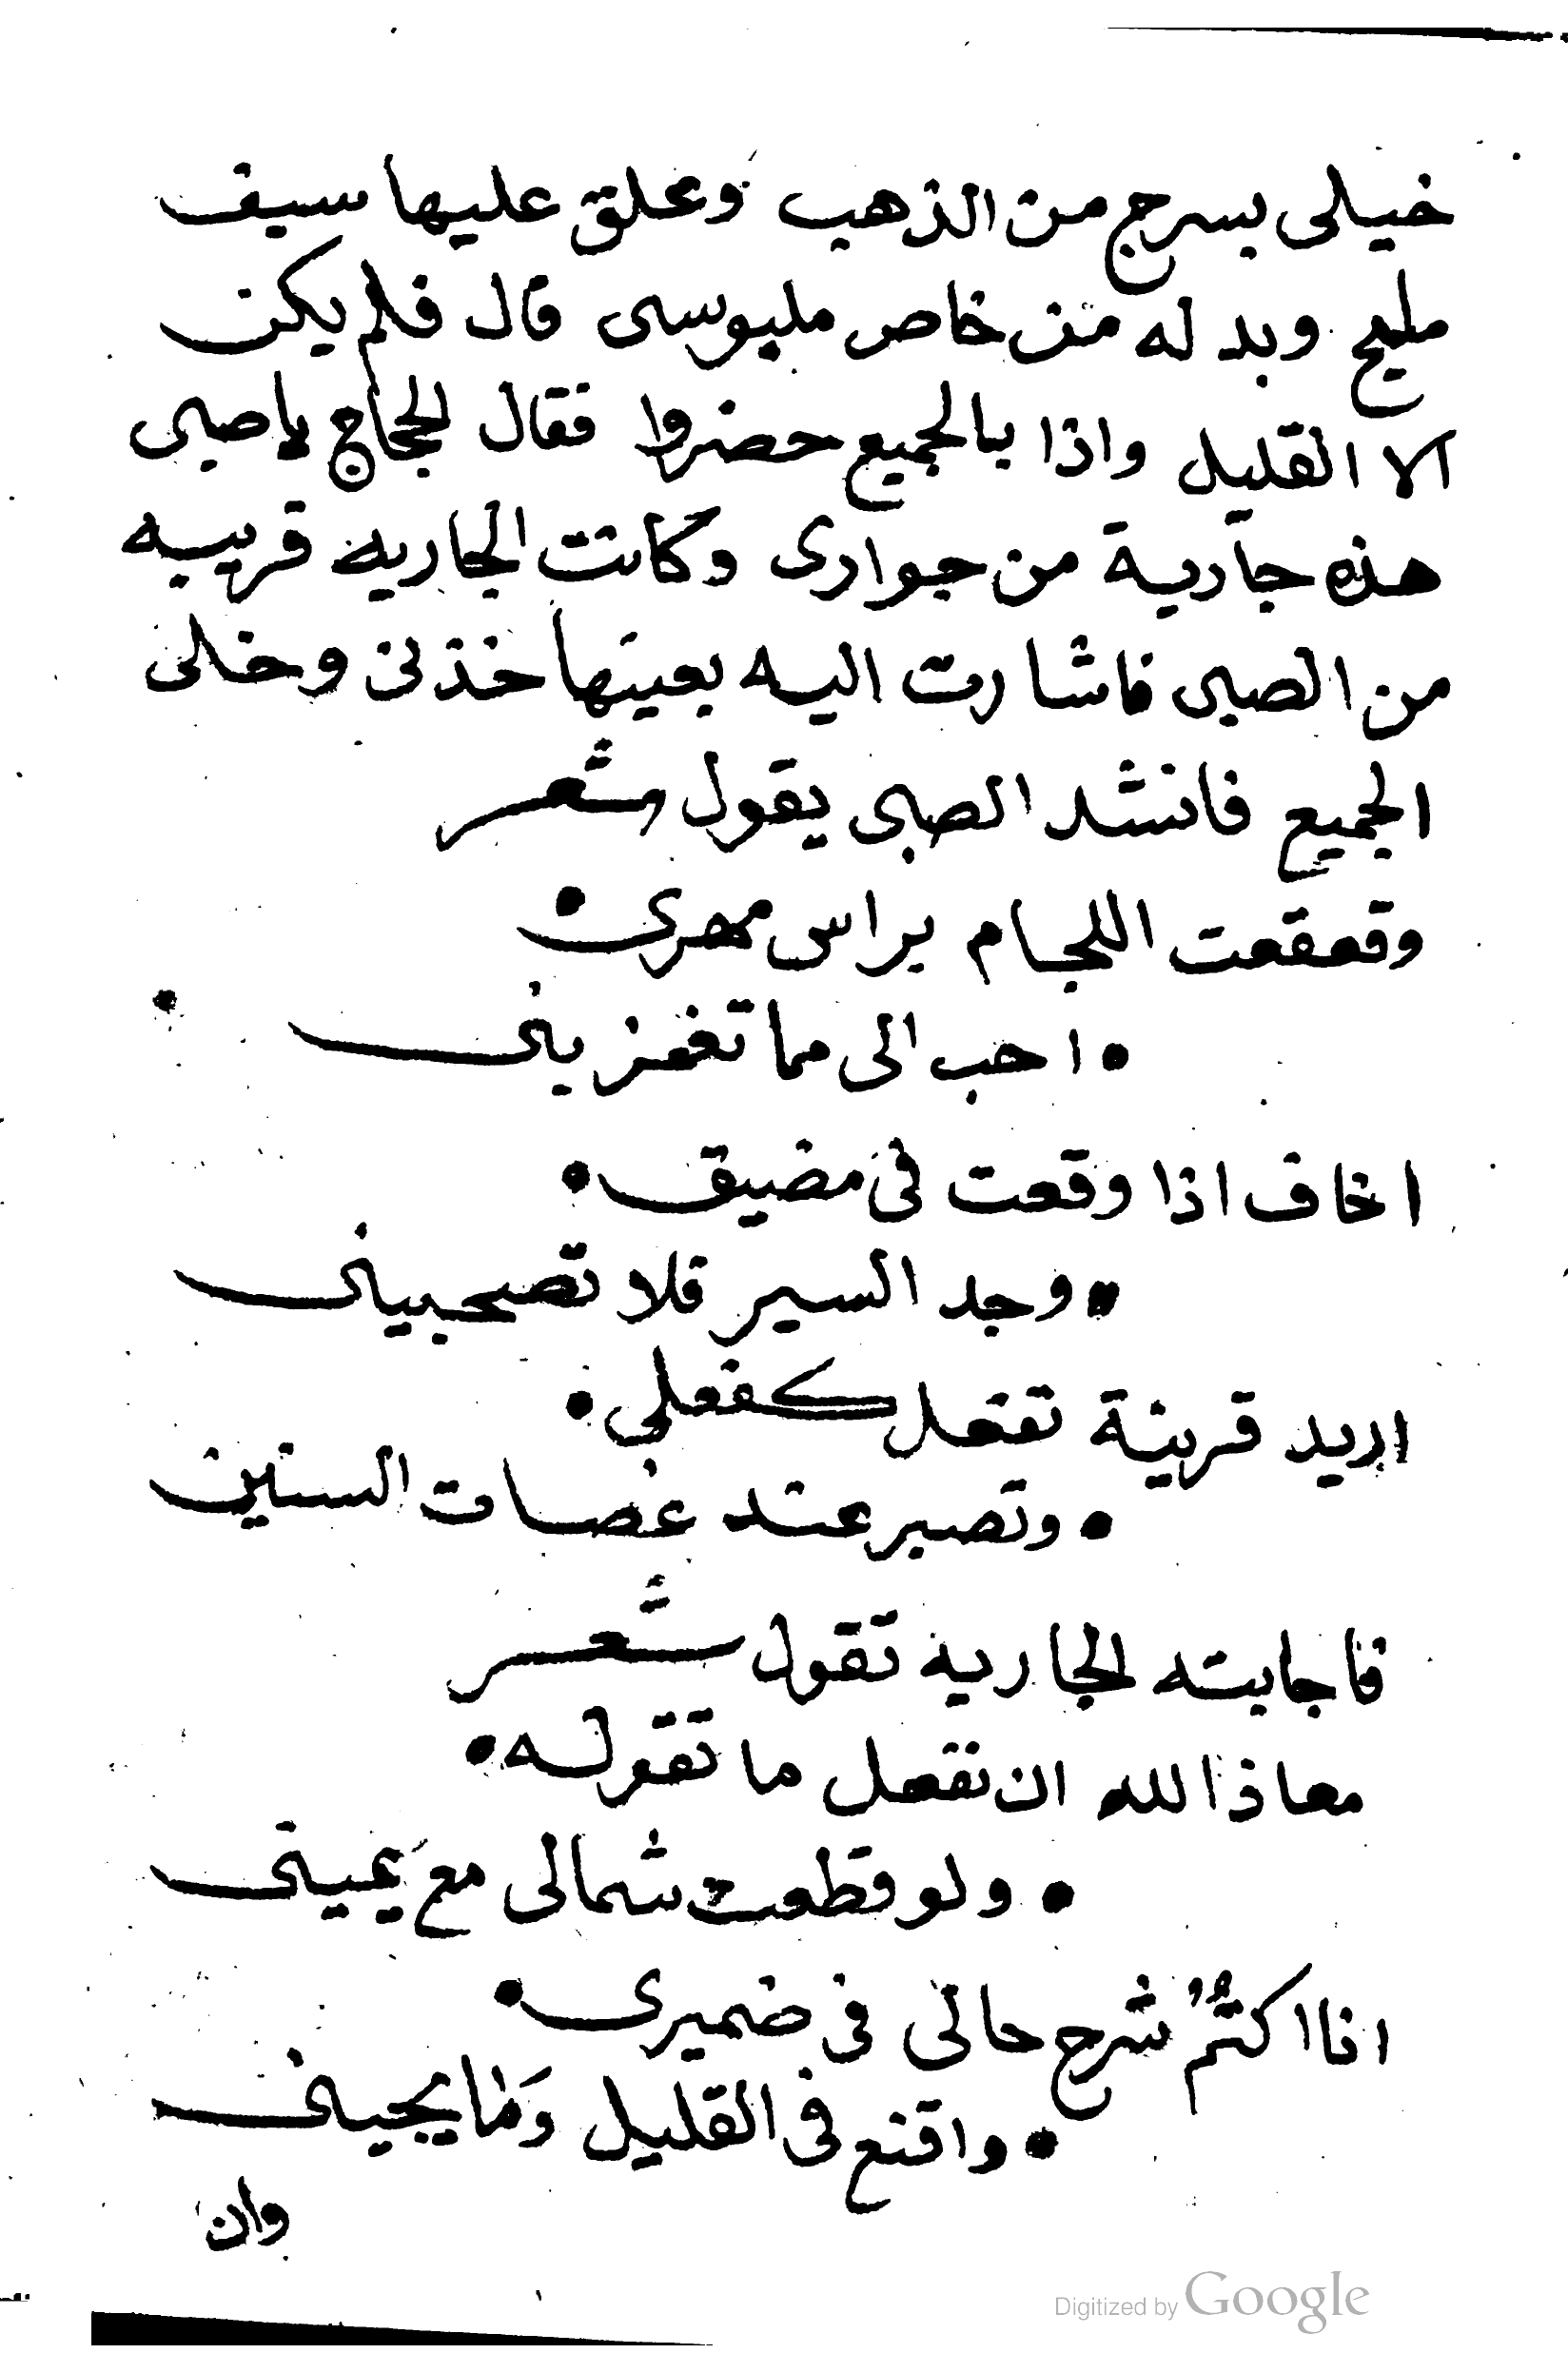 خيلى بسرج من الذهب وعلق عليها سيف
مليح وبدله من خاص ملبوسى قال فلم يكن
الا القليل واذا بالجميع حضروا فقال الحجاج ياصبى
هذه جارية من جوارى وكانت الجاريه قريبه
من الصبى فاشارت اليه بعينها خذنى وخلى
الجميع فانشد الصبى يقول شعر
وقعقعت اللجام براس مهرى
احب الى مما تغمزينى
اخاف اذا وقعت فى مضيق
وجد السير فلا تصحبينى
اريد قرينة تفعل كفعلى
وتصبر عند غصات السنين
فاجابته الجاريه تقول شعر
معاذ الله ان نفعل ما تقوله
ولو قطعت شمالى مع يمينى
انا اكتم شرح حالى فى ضميرى
واقنع فى القليل وما يجينى
وان
Digitized by Google